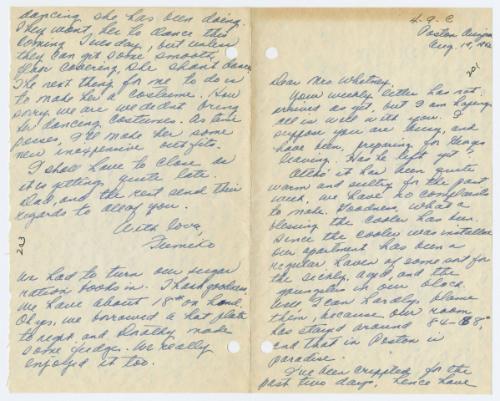 4. G. C
Poston Arizona
Aug. 19, 1942
201
Dear Mrs Whitney,
Your weekly letter has not
arrived as yet, but I am hoping
all is well with you. I
suppose you are busy, and
have been, preparing for
leaving. Has he left yet?
Altho' it has been quite
warm and sultry for the past
week, we have no complaints
to make. Goodness what a
blessing the cooler has been.
Since the cooler was installed
our apartment has been a
regular haven of some sort for
the sickly, aged, and the
youngsters in our block.
Well I can hardly blame
them, because our room
has stayed around 84-88°
and that in Poston is
paradise.
I've been crippled for the
past two days, hence have
dancing she has been doing.
They want her to dance this
coming Tuesday, but unless
they can get some smooth
floor covering, she shan't dance.
The next thing for me to do is
to make her a costume. Am
sorry we are we didn't bring
her dancing costumes. As time
passes, I'll make her some
new inexpensive outfits.
I shall have to close as
it is getting quite late.
Dad, and the rest send their
regards to all of you.
With love,
Fumiko
203
We had to turn our sugar
ration books in. Thank goodness
we have about 18# on hand.
O yes, we borrowed a hot plate
to night and Dorothy made
some fudge. We really
enjoyed it too.